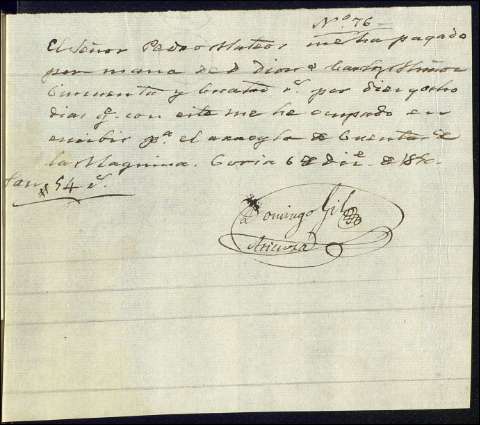 Nº 76
El Señor Pedro Mateos me ha pagado
por mano de d
Cincuenta y Cuatro r.ˢ por diez y ocho
dias q.ᵉ con este me he ocupado en
escribir p.ᵃ el arreglo de Cuentas de
la Maquina. Coria 6 de
Son 54 r.ˢ
Domingo Gil